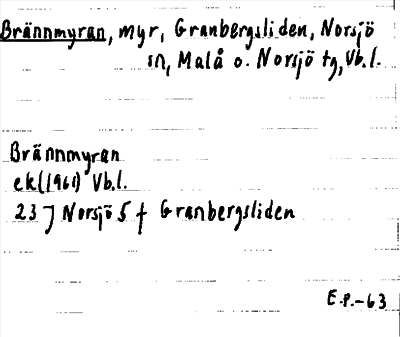 Brännmyran, myr, Granbergsliden, Norsjö
sn, Malå o. Norsjö tg, Vb.l.
Brännmyran
ek(1961) Vb.l.
23 J Norsjö 5 f Granbergsliden
E.P.-63